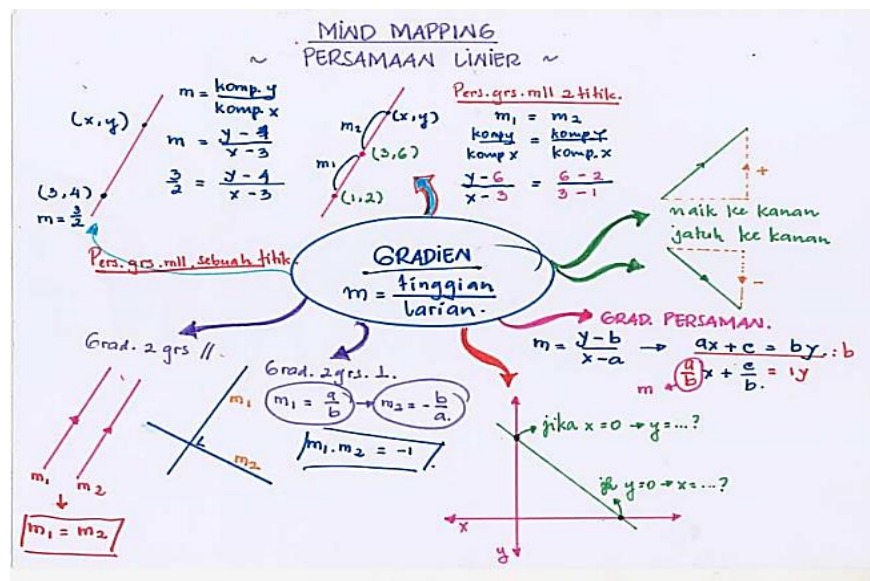 MIND MAPPING
~ PERSAMAAN LINIER ~
(x,y)
(3,4)
m = 3/2
m = komp.y/komp.x
m = y-4/x-3
3/2 = y-4/x-3
Pers.grs.mll.sebuah titik.
m₂
(x,y)
m₁
(3,6)
(1,2)
Pers.grs.mll 2 titik.
m₁ = m₂
komp y/komp x = komp.y/komp.x
y-6/x-3 = 6-2/3-1
+
naik ke kanan
jatuh ke kanan
-
GRADIEN
m = tinggian/larian.
GRAD. PERSAMAN.
m = y-b/x-a → ax + c = by :b
m ← a/b x + c/b. = 1y
Grad. 2 grs //.
m₁
m₂
m₁ = m₂
Grad. 2 grs. ⊥.
m₁ = a/b → m₂ = -b/a.
m₁.m₂ = -1
m₁
m₂
jika x=0 → y=...?
jk y=0 → x=...?
x
y